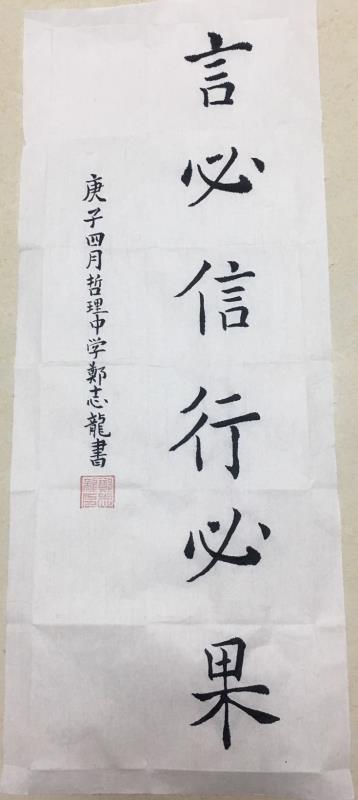 言必信行必果
庚子四月哲理中学鄭志龍書